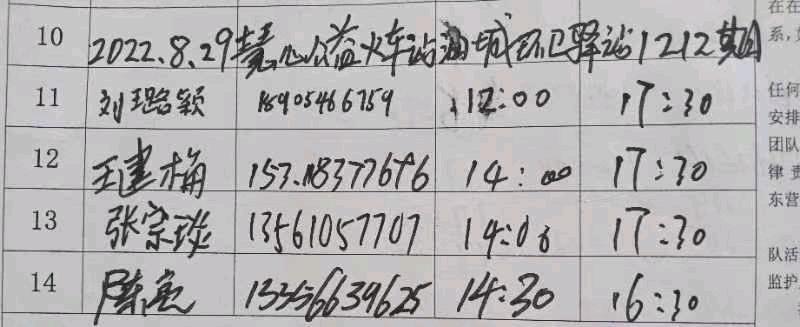 10 2022.8.29 慧心公益火车站油城环卫驿站1212期
11 刘璐颖 15905466759 12:00 17:30
12 王建梅 14:00 17:30
13 张宗琰 13561057707 14:00 17:30
14 陈亮 13356639625 14:30 16:30
在在
系,
任何
安排
团队
律 责
东营
队活
监护